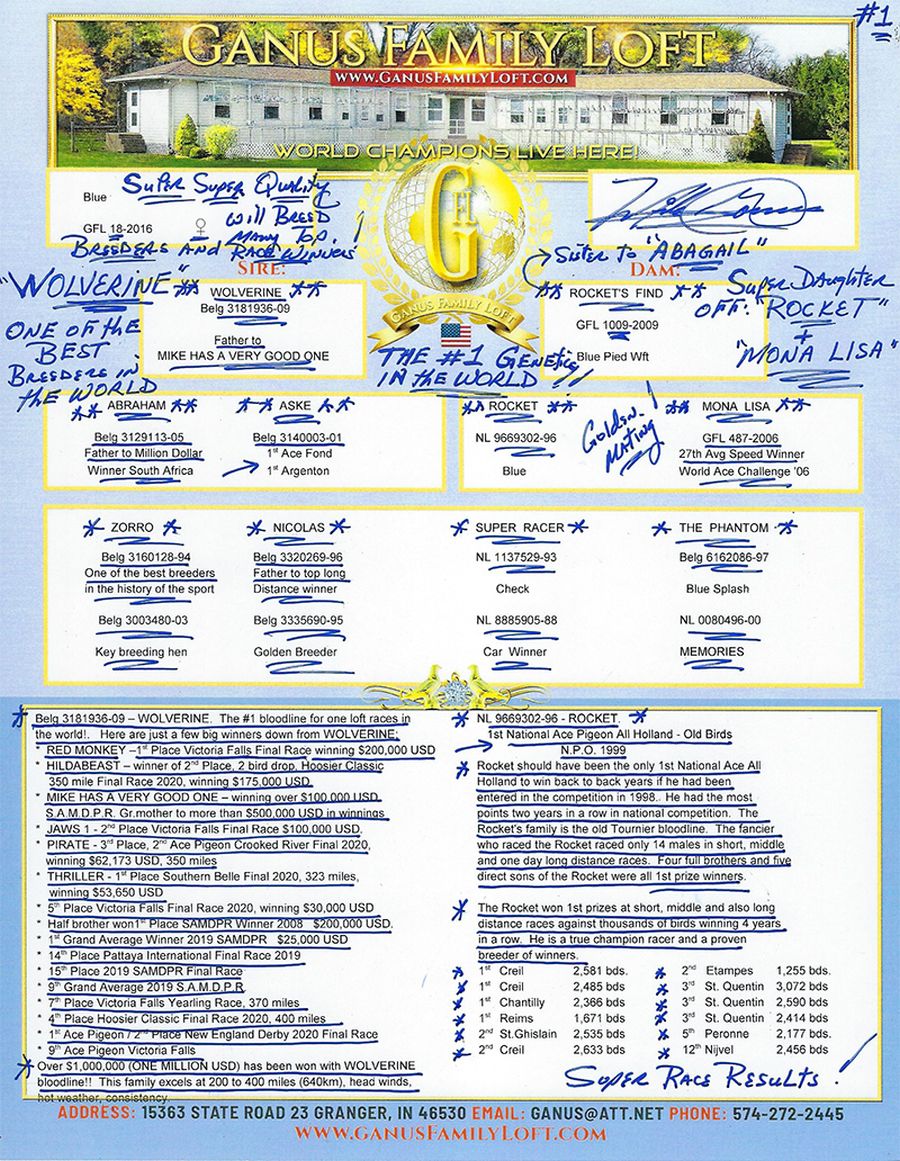 #1
GANUS FAMILY LOFT
WWW.GANUSFAMILYLOFT.COM
WORLD CHAMPIONS LIVE HERE!
Blue
GFL 18-2016 ♀
SUPER SUPER QUALITY
will BREED
MANY TOP
BREEDERS AND RACE WINNERS!
GFL
GANUS FAMILY LOFT
SIRE:
"WOLVERINE"
ONE OF the
BEST
BREEDERS in
the WORLD
** WOLVERINE **
Belg 3181936-09
Father to
MIKE HAS A VERY GOOD ONE
THE #1 GENETICS
IN the WORLD!!
SISTER TO "ABAGAIL"
DAM:
** ROCKET'S FIND **
GFL 1009-2009
Blue Pied Wft
SUPER DAUGHTER
OFF: "ROCKET"
+
"MONA LISA"
** ABRAHAM **
Belg 3129113-05
Father to Million Dollar
Winner South Africa
** ASKE **
Belg 3140003-01
1st Ace Fond
1st Argenton
** ROCKET **
NL 9669302-96
Blue
Golden!
MATING
** MONA LISA **
GFL 487-2006
27th Avg Speed Winner
World Ace Challenge '06
* ZORRO *
Belg 3160128-94
One of the best breeders
in the history of the sport
Belg 3003480-03
Key breeding hen
* NICOLAS *
Belg 3320269-96
Father to top long
Distance winner
Belg 3335690-95
Golden Breeder
* SUPER RACER *
NL 1137529-93
Check
NL 8885905-88
Car Winner
* THE PHANTOM *
Belg 6162086-97
Blue Splash
NL 0080496-00
MEMORIES
* Belg 3181936-09 – WOLVERINE. The #1 bloodline for one loft races in
the world!. Here are just a few big winners down from WOLVERINE;
* RED MONKEY –1st Place Victoria Falls Final Race winning $200,000 USD
* HILDABEAST – winner of 2nd Place, 2 bird drop, Hoosier Classic
350 mile Final Race 2020, winning $175,000 USD
* MIKE HAS A VERY GOOD ONE – winning over $100,000 USD
S.A.M.D.P.R. Gr.mother to more than $500,000 USD in winnings
* JAWS 1 - 2nd Place Victoria Falls Final Race $100,000 USD.
* PIRATE - 3rd Place, 2nd Ace Pigeon Crooked River Final 2020,
winning $62,173 USD, 350 miles
* THRILLER - 1st Place Southern Belle Final 2020, 323 miles,
winning $53,650 USD
* 5th Place Victoria Falls Final Race 2020, winning $30,000 USD
* Half brother won1st Place SAMDPR Winner 2008 $200,000 USD.
* 1st Grand Average Winner 2019 SAMDPR $25,000 USD
* 14th Place Pattaya International Final Race 2019
* 15th Place 2019 SAMDPR Final Race
* 9th Grand Average 2019 S.A.M.D.P.R.
* 7th Place Victoria Falls Yearling Race, 370 miles
* 4th Place Hoosier Classic Final Race 2020, 400 miles
* 1st Ace Pigeon / 2nd Place New England Derby 2020 Final Race
* 9th Ace Pigeon Victoria Falls
* Over $1,000,000 (ONE MILLION USD) has been won with WOLVERINE
bloodline!! This family excels at 200 to 400 miles (640km), head winds,
hot weather, consistency.
* NL 9669302-96 - ROCKET. *
1st National Ace Pigeon All Holland - Old Birds
N.P.O. 1999
* Rocket should have been the only 1st National Ace All
Holland to win back to back years if he had been
entered in the competition in 1998.. He had the most
points two years in a row in national competition. The
Rocket's family is the old Tournier bloodline. The fancier
who raced the Rocket raced only 14 males in short, middle
and one day long distance races. Four full brothers and five
direct sons of the Rocket were all 1st prize winners.
* The Rocket won 1st prizes at short, middle and also long
distance races against thousands of birds winning 4 years
in a row. He is a true champion racer and a proven
breeder of winners.
* 1st Creil 2,581 bds. * 2nd Etampes 1,255 bds.
* 1st Creil 2,485 bds. * 3rd St. Quentin 3,072 bds
* 1st Chantilly 2,366 bds. * 3rd St. Quentin 2,590 bds
* 1st Reims 1,671 bds * 3rd St. Quentin 2,414 bds
* 2nd St.Ghislain 2,535 bds * 5th Peronne 2,177 bds.
* 2nd Creil 2,633 bds * 12th Nijvel 2,456 bds
SUPER RACE RESULTS!
ADDRESS: 15363 STATE ROAD 23 GRANGER, IN 46530 EMAIL: GANUS@ATT.NET PHONE: 574-272-2445
WWW.GANUSFAMILYLOFT.COM